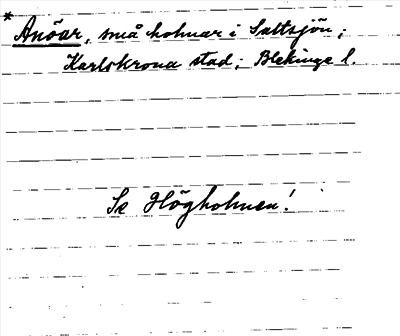 * Anöar, små holmar i Saltsjön;
Karlskrona stad; Blekinge l.
Se Högholmen!